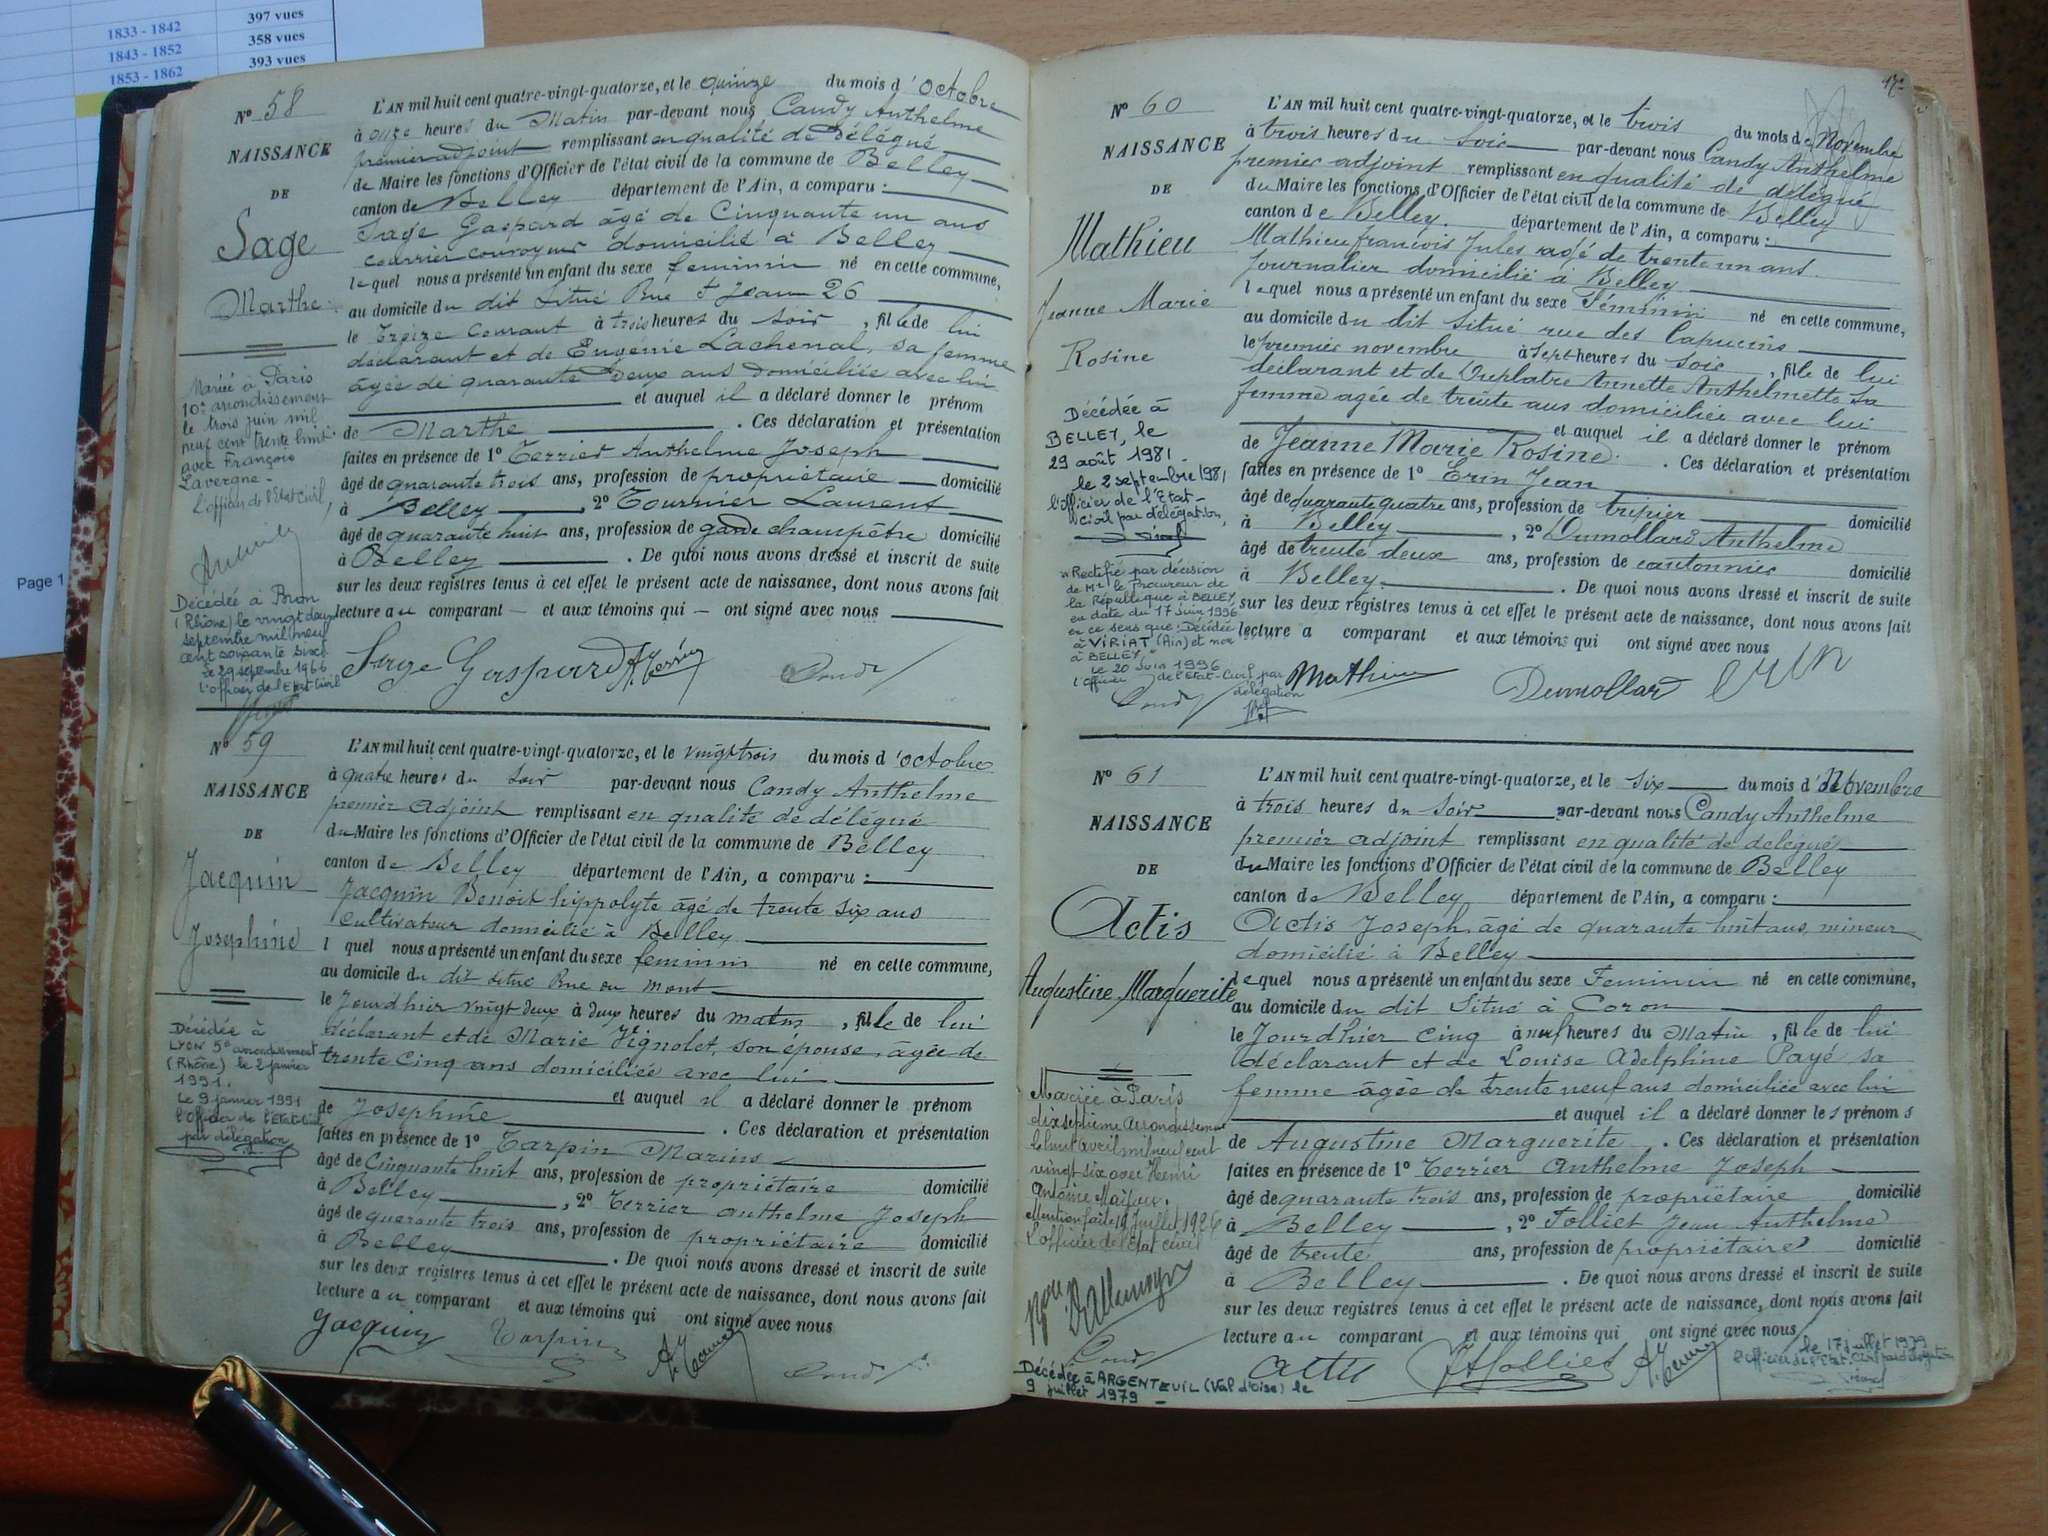 397 vues
1833 - 1842
358 vues
1843 - 1852
393 vues
1853 - 1862
Page 1
N° 58
NAISSANCE
DE
Sage
Marthe
Mariée à Paris
10e arrondissement
le trois juin mil
neuf cent trente huit
avec François
Lavergne -
L'officier de l'Etat Civil,
Décédée à Bron
(Rhône) le vingt deux
septembre mil neuf
cent soixante six
Le 29 septembre 1966
L'officier de l'Etat Civil
L'AN mil huit cent quatre-vingt-quatorze, et le quinze du mois d'octobre
à onze heures du Matin par-devant nous Candy Anthelme
premier adjoint remplissant en qualité de Délégué
du Maire les fonctions d'Officier de l'état civil de la commune de Belley
canton de Belley département de l'Ain, a comparu :
Sage Gaspard âgé de Cinquante un ans
courrier domicilié à Belley
lequel nous a présenté un enfant du sexe feminin né en cette commune,
au domicile du dit Situé Rue St Jean 26
le Treize Courant à trois heures du Soir, fille de lui
déclarant et de Eugénie Lachenal, sa femme
âgée de quarante deux ans domiciliée avec lui
et auquel il a déclaré donner le prénom
de Marthe . Ces déclaration et présentation
faites en présence de 1° Terrier Anthelme Joseph
âgé de quarante trois ans, profession de propriétaire domicilié
à Belley , 2° Tournier Laurent
âgé de quarante huit ans, profession de garde champêtre domicilié
à Belley . De quoi nous avons dressé et inscrit de suite
sur les deux registres tenus à cet effet le présent acte de naissance, dont nous avons fait
lecture au comparant et aux témoins qui ont signé avec nous
Sage Gaspard A. Terrier Candy
N° 59
NAISSANCE
DE
Jacquin
Josephine
Décédée à
LYON 5e arrondissement
(Rhône) le 2 janvier
1991.
Le 9 janvier 1991
l'Officier de l'Etat-Civil
par délégation
L'AN mil huit cent quatre-vingt-quatorze, et le vingt trois du mois d'octobre
à quatre heures du Soir par-devant nous Candy Anthelme
premier adjoint remplissant en qualité de délégué
du Maire les fonctions d'Officier de l'état civil de la commune de Belley
canton de Belley département de l'Ain, a comparu :
Jacquin Benoit hippolyte âgé de trente six ans
Cultivateur domicilié à Belley
l quel nous a présenté un enfant du sexe feminin né en cette commune,
au domicile du dit situé Rue du mont
le Jourd'hier vingt deux à deux heures du matin, fille de lui
déclarant et de Marie Vignolet, son épouse, âgée de
trente Cinq ans domiciliée avec lui
et auquel il a déclaré donner le prénom
de Josephine . Ces déclaration et présentation
faites en présence de 1° Tarpin Marius
âgé de Cinquante huit ans, profession de propriétaire domicilié
à Belley , 2° Terrier anthelme Joseph
âgé de quarante trois ans, profession de propriétaire domicilié
à Belley . De quoi nous avons dressé et inscrit de suite
sur les deux registres tenus à cet effet le présent acte de naissance, dont nous avons fait
lecture au comparant et aux témoins qui ont signé avec nous
Jacquin Tarpin A. Terrier Candy
N° 60
NAISSANCE
DE
Mathieu
Jeanne Marie
Rosine
Décédée à
BELLEY, le
29 août 1981.
le 2 septembre 1981
l'officier de l'Etat-
civil par délégation,
Rectifié par décision
de Mr le Procureur de
la République à BELLEY
en date du 17 Juin 1996
en ce sens que : Décédée
à VIRIAT (Ain) et non
à BELLEY."
Le 20 Juin 1996
l'Officier de l'Etat-Civil par
délégation
L'AN mil huit cent quatre-vingt-quatorze, et le trois du mois de Novembre
à trois heures du Soir par-devant nous Candy Anthelme
premier adjoint remplissant en qualité de délégué
du Maire les fonctions d'Officier de l'état civil de la commune de Belley
canton de Belley. département de l'Ain, a comparu :
Mathieu françois Jules agé de trente un ans
Journalier domicilié à Belley
lequel nous a présenté un enfant du sexe Féminin né en cette commune,
au domicile du dit Situé rue des Capucins
le premier novembre à sept heures du Soir, fille de lui
déclarant et de Duplatre Annette Anthelmette sa
femme agée de trente ans domiciliée avec lui
et auquel il a déclaré donner le prénom
de Jeanne Marie Rosine. . Ces déclaration et présentation
faites en présence de 1° Erin Jean
âgé de quarante quatre ans, profession de tripier domicilié
à Belley , 2° Dumollard Anthelme
âgé de trente deux ans, profession de cantonnier domicilié
à Belley . De quoi nous avons dressé et inscrit de suite
sur les deux registres tenus à cet effet le présent acte de naissance, dont nous avons fait
lecture a comparant et aux témoins qui ont signé avec nous
Candy Mathieu Dumollard erin
N° 61
NAISSANCE
DE
Actis
Augustine Marguerite
Mariée à Paris
dixseptième Arrondissement
le huit avril mil neuf cent
vingt six avec Henri
Antoine
Mention faite 19 Juillet 1926
L'officier de l'Etat civil
L'AN mil huit cent quatre-vingt-quatorze, et le six du mois d'Novembre
à trois heures du Soir par-devant nous Candy Anthelme
premier adjoint remplissant en qualité de délégué
du Maire les fonctions d'Officier de l'état civil de la commune de Belley
canton de Belley département de l'Ain, a comparu :
Actis Joseph âgé de quarante huit ans, mineur
domicilié à Belley
lequel nous a présenté un enfant du sexe Feminin né en cette commune,
au domicile du dit Situé à Coron
le Jourd'hier cinq à neuf heures du Matin, fille de lui
déclarant et de Louise Adelphine Payé sa
femme âgée de trente neuf ans domiciliée avec lui
et auquel il a déclaré donner les prénoms
de Augustine Marguerite . Ces déclaration et présentation
faites en présence de 1° Terrier Anthelme Joseph
âgé de quarante trois ans, profession de propriétaire domicilié
à Belley , 2° Folliet Jean Anthelme
âgé de trente ans, profession de propriétaire domicilié
à Belley . De quoi nous avons dressé et inscrit de suite
sur les deux registres tenus à cet effet le présent acte de naissance, dont nous avons fait
lecture au comparant et aux témoins qui ont signé avec nous
Candy Actis JAFolliet A. Terrier
Décédée à ARGENTEUIL (Val d'Oise) le
9 juillet 1979 -
le 17 juillet 1979
l'officier de l'Etat-Civil par délégation